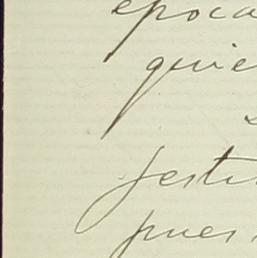 epoca
quie
festi
pues